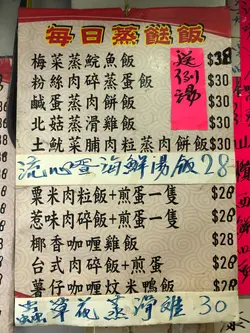 每日蒸餸飯
送例湯
梅菜蒸鯇魚飯 $38
粉絲肉碎蒸蛋飯 $30
鹹蛋蒸肉餅飯 $30
北菇蒸滑雞飯 $30
土魷菜脯肉粒蒸肉餅飯 $30
流心蛋海鮮湯飯 28
粟米肉粒飯+煎蛋一隻 $28
惹味肉碎飯+煎蛋一隻 $28
椰香咖喱雞飯 $28
台式肉碎飯+煎蛋 $28
薯仔咖喱炆米鴨飯 $28
蟲草花蒸滑雞 30